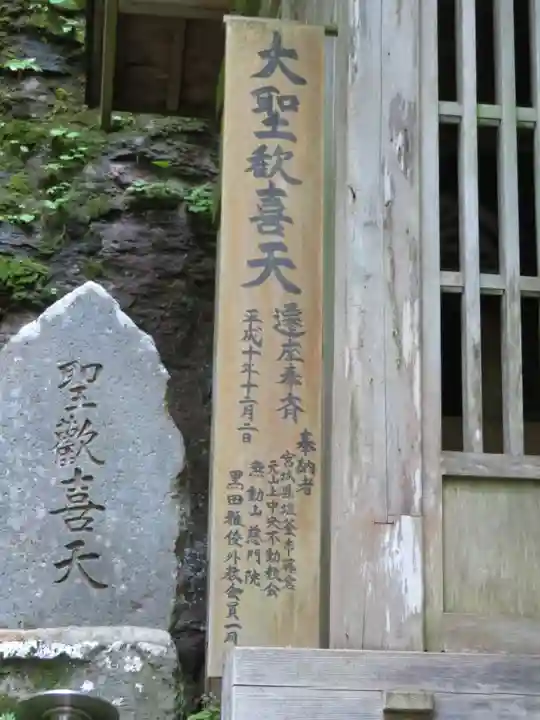 大聖歓喜天
遷座奉斉
平成十年十二月二日
奉納者
宮城県塩釜市
天山上中央不動教会
無動山慈門院
黒田雅俊外教会員一同
聖歡喜天